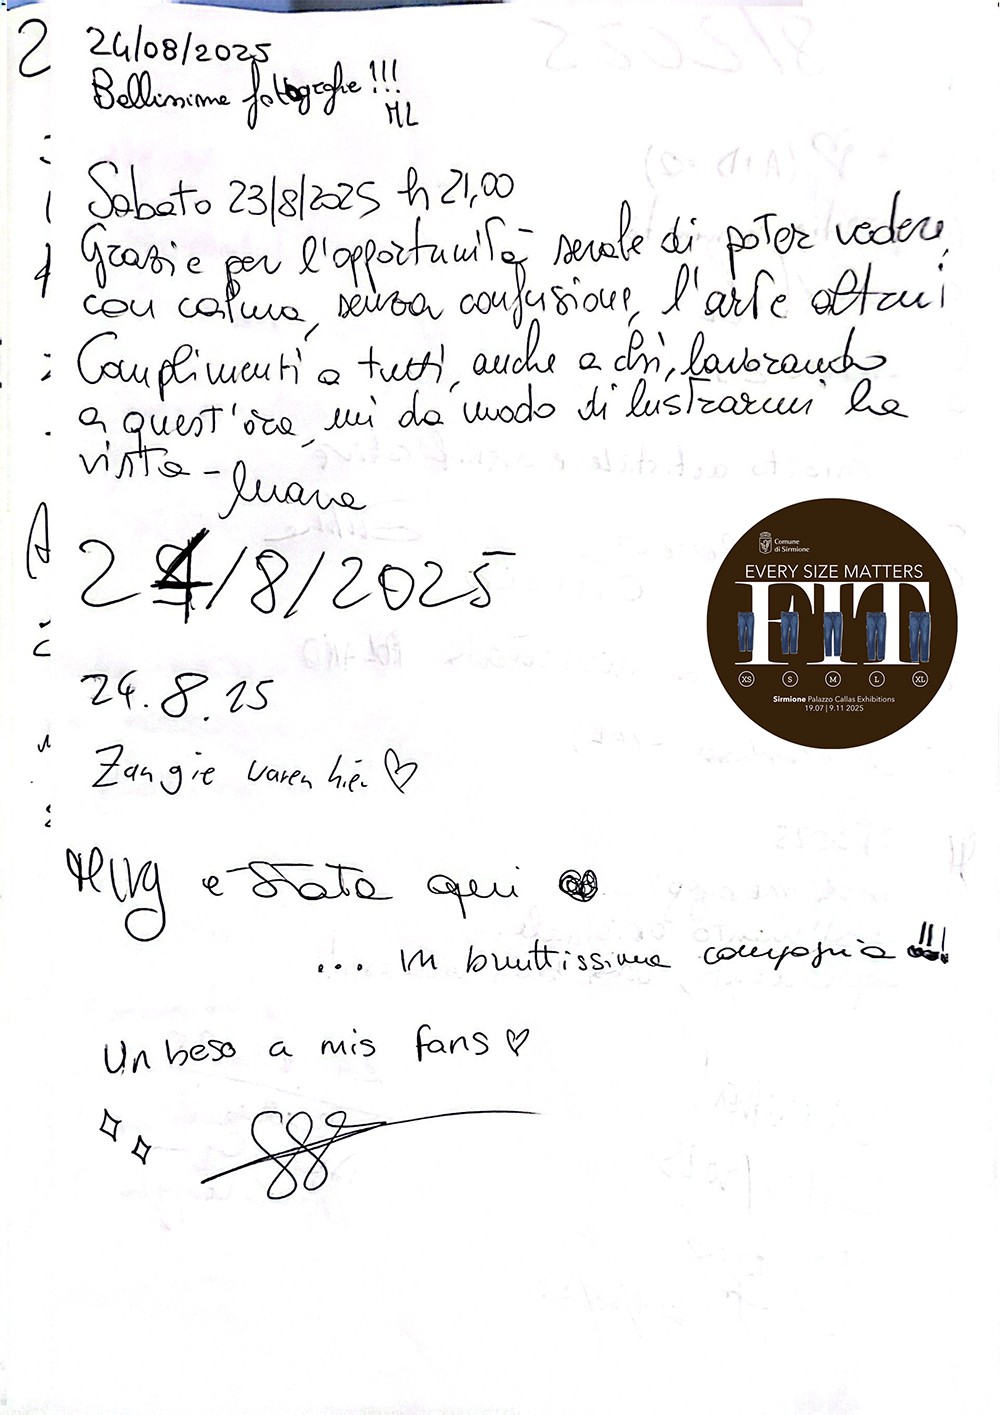 24/08/2025
Bellissime fotografie!!!
ML
Sabato 23/8/2025 h 21,00
Grazie per l'opportunità serale di poter vedere,
con calma, senza confusione, l'arte altrui
Complimenti a tutti, anche a chi, lavorando
a quest'ora, mi da modo di lustrarmi la
vista -
Luana
24/8/2025
24.8.25
Zangie waren hier ♡
è stata qui
... in bruttissima compagnia !!!
Un beso a mis fans ♡
Comune
di Sirmione
EVERY SIZE MATTERS
XS S M L XL
Sirmione Palazzo Callas Exhibitions
19.07 | 9.11 2025